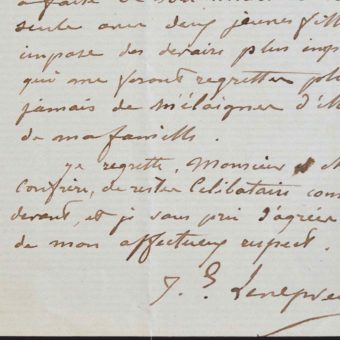 seule avec deux jeunes fill
impose des devoirs plus imp
qui me feront regretter plu
jamais de m'éloigner d'
de ma famille.
je regrette, Monsieur &
Confrère, de rester Célibataire com
devant, et je vous prie d'agréer
de mon affectueux respect.
J. E. Lenepveu